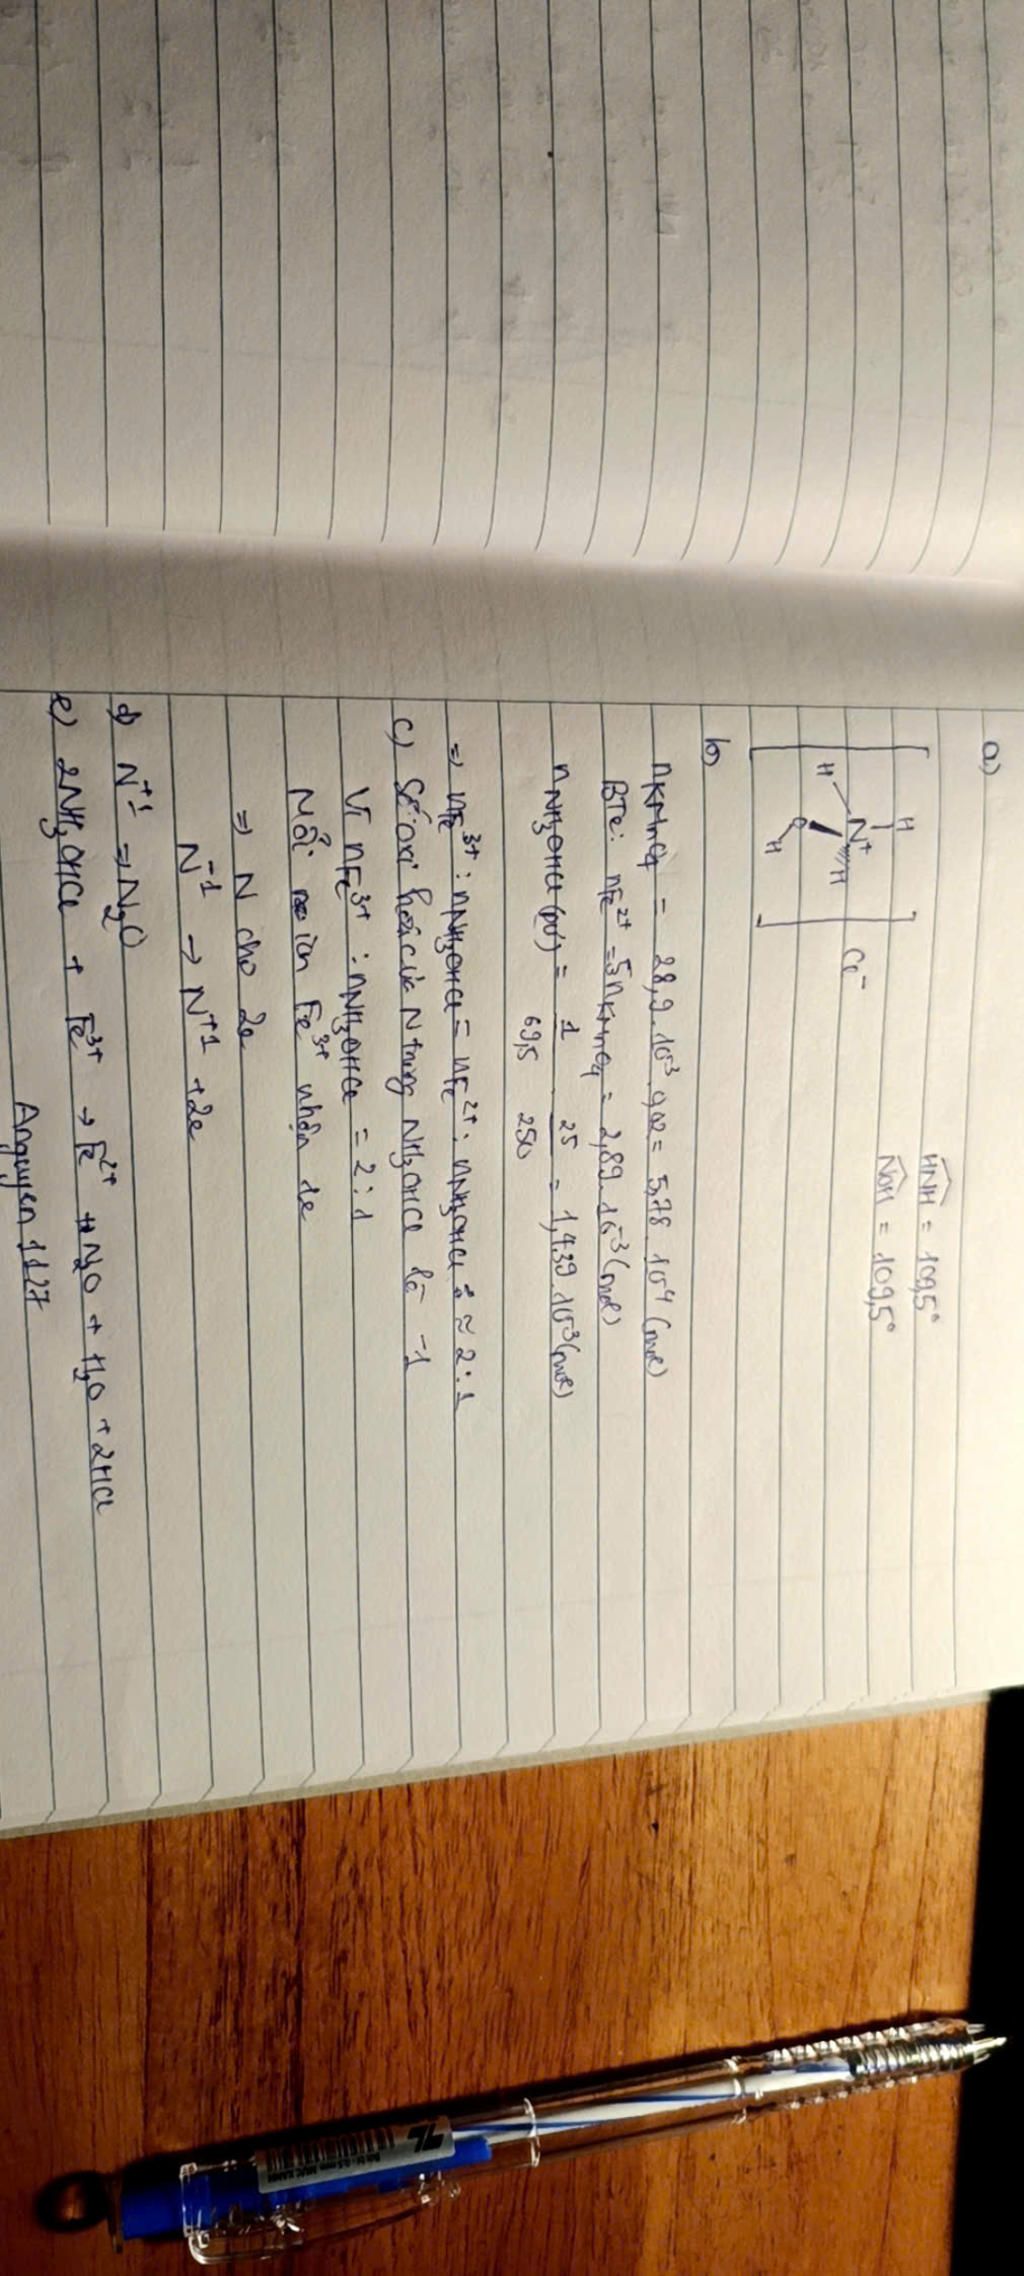 a)
HNH = 109,5°
NOH = 109,5°
H
N+
H
H
O
H
Cl-
b)
nKMnO4 = 28,9.10^-3.0,02 = 5,78.10^-4 (mol)
BTe: nFe2+ = 5nKMnO4 = 2,89.10^-3 (mol)
nNH3OHCl (pứ) = 1/69,5 . 25/250 = 1,439.10^-3 (mol)
=> nFe3+ : nNH3OHCl = nFe2+ : nNH3OHCl ≈ 2:1
c) Số oxi hoá của N trong NH3OHCl là -1
Vì nFe3+ : nNH3OHCl = 2:1
Mỗi ion Fe3+ nhận 1e
=> N cho 2e
N-1 → N+1 +2e
d) N+1 => N2O
e) 2NH3OHCl + Fe3+ → Fe2+ + N2O + H2O + 2HCl
Anguyen 1127